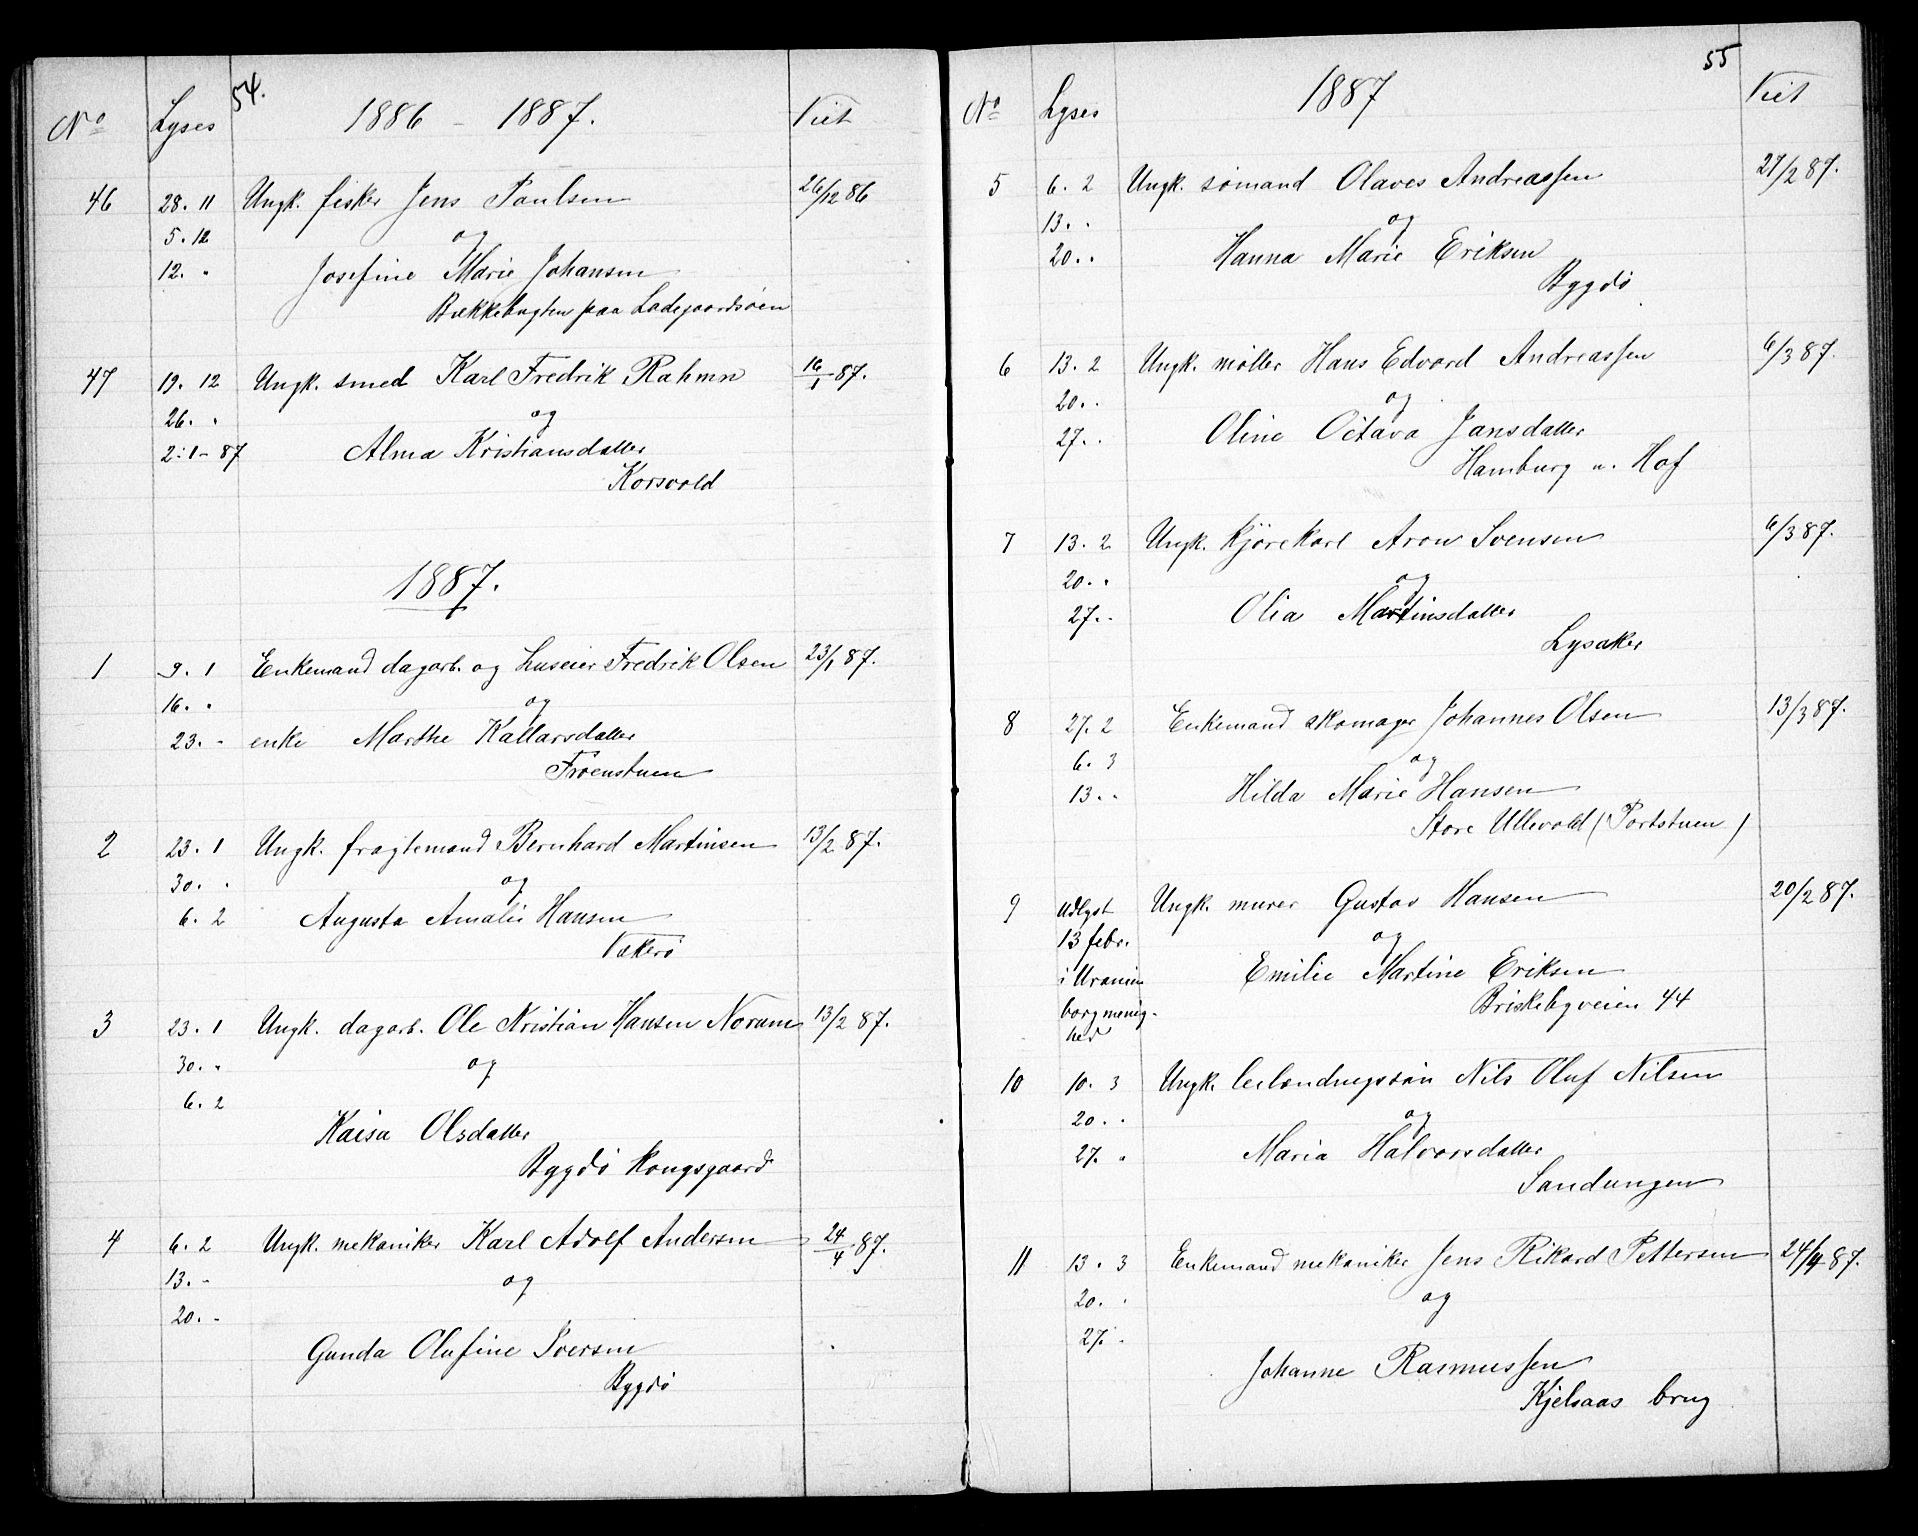 54.
No Lyses 1886 - 1887. Viet
46 28. 11 Ungk. fisker Jens Paulsen 26/12 86
5. 12 og
12. " Josefine Marie Johansen
Bækkebugten paa Ladegaardsøen
47 19. 12 Ungk. smed Karl Fredrik Rahmn 16/1 87.
26. " og
2. 1- 87 Alma Kristiansdatter
Korsvold
1887.
1 9. 1 Enkemand dagarb. og huseier Fredrik Olsen 23/1 87.
16. " og
23. " enke Marthe Kallarsdatter
Frøenstuen
2 23. 1 Ungk. fragtemand Bernhard Martinsen 13/2 87.
30. " og
6. 2 Augusta Amalie Hansen
Vækerø
3 23. 1 Ungk. dagarb. Ole Kristian Hansen Norum 13/2 87.
30. " og
6. 2
Kaisa Olsdatter
Bygdø kongsgaard
4 6. 2 Ungk. mekaniker Karl Adolf Andersen 24/4 87.
13. " og
20. "
Gunda Olufine Iversen
Bygdø
55
No Lyses 1887 Viet
5 6. 2 Ungk. sømand Olaves Andreassen 27/2 87.
13. " og
20. " Hanna Marie Eriksen
Bygdø
6 13. 2 Ungk. møller Hans Edvard Andreassen 6/3 87.
20. " og
27. " Oline Octava Jansdatter
Hamburg u. Hof
7 13. 2 Ungk. Kjørekarl Aron Svensen 6/3 87.
20. " og
27. " Olia Martinsdatter
Lysaker
8 27. 2 Enkemand skomager Johannes Olsen 13/3 87.
6. 3 og
13. " Hilda Marie Hansen
Store Ullevold (Portstuen)
9 Udlyst Ungk. murer Gustav Hansen 20/2 87.
13 febr. og
i Uranien Emilie Martine Eriksen
borg menig- Briskebyveien 44
hed
10 10. 3 Ungk. leilændingssøn Nils Oluf Nilsen
20. " og
27. " Maria Halvorsdatter
Sandungen
11 13. 3 Enkemand mekaniker Jens Rikard Pettersen 24/4 87.
20. " og
27. "
Johanne Rasmussen
Kjelsaas brug